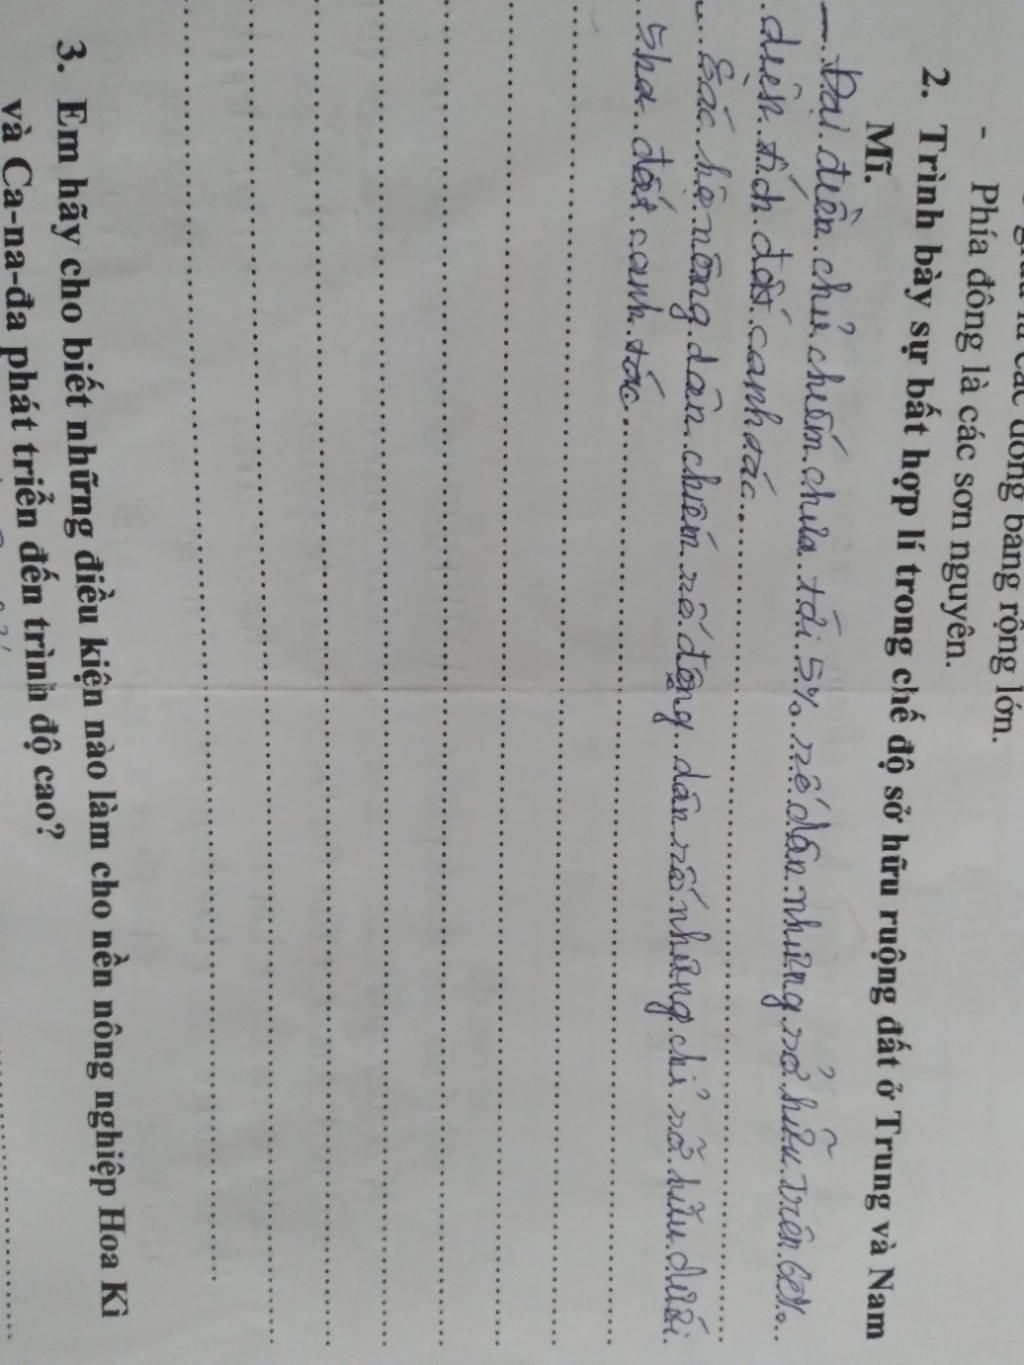 các đồng bằng rộng lớn.
- Phía đông là các sơn nguyên.
2. Trình bày sự bất hợp lí trong chế độ sở hữu ruộng đất ở Trung và Nam
Mĩ.
- Đại điền chủ chiếm chưa tới 5% số dân nhưng sở hữu trên 60%
diện tích đất canh tác
- Các hộ nông dân chiếm số đông dân số nhưng chỉ sở hữu dưới
5ha đất canh tác
3. Em hãy cho biết những điều kiện nào làm cho nền nông nghiệp Hoa Kì
và Ca-na-đa phát triển đến trình độ cao?